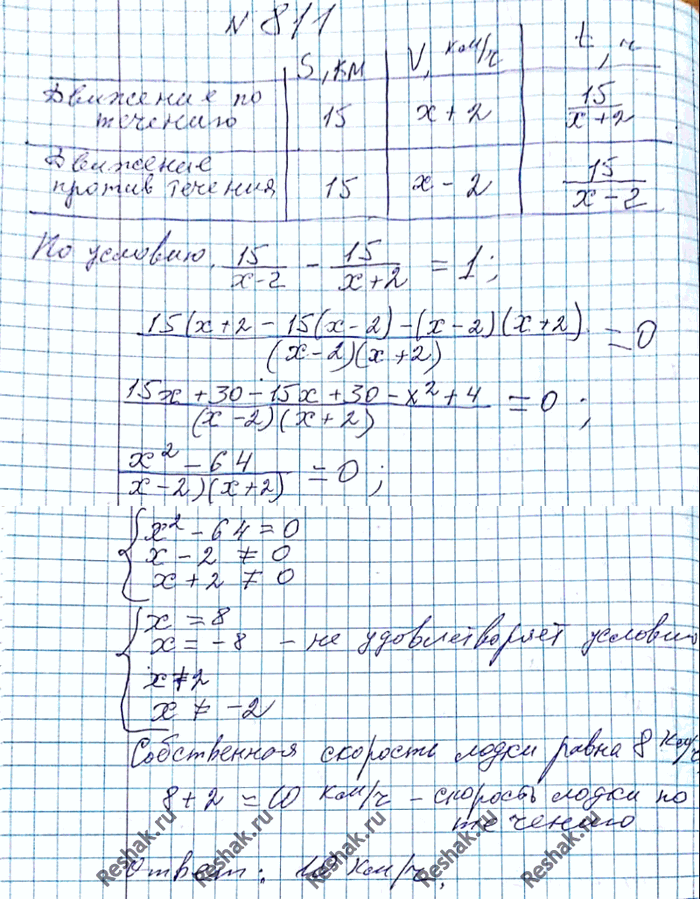 N 811
S, км V, км/ч t, ч
Движение по
течению 15 x + 2 15/(x+2)
Движение
против течения 15 x - 2 15/(x-2)
По условию. 15/(x-2) - 15/(x+2) = 1;
(15(x+2 - 15(x-2) - (x-2)(x+2))/((x-2)(x+2)) = 0
(15x + 30 - 15x + 30 - x² + 4)/((x-2)(x+2)) = 0;
(x² - 64)/(x-2)(x+2)) = 0;
x² - 64 = 0
x - 2 ≠ 0
x + 2 ≠ 0
x = 8
x = -8 - не удовлетворяет условию
x ≠ 2
x ≠ -2
Собственная скорость лодки равна 8 км/ч
8 + 2 = 10 км/ч - скорость лодки по
течению
Ответ: 10 км/ч.
Reshak.ru Reshak.ru Reshak.ru Reshak.ru Reshak.ru